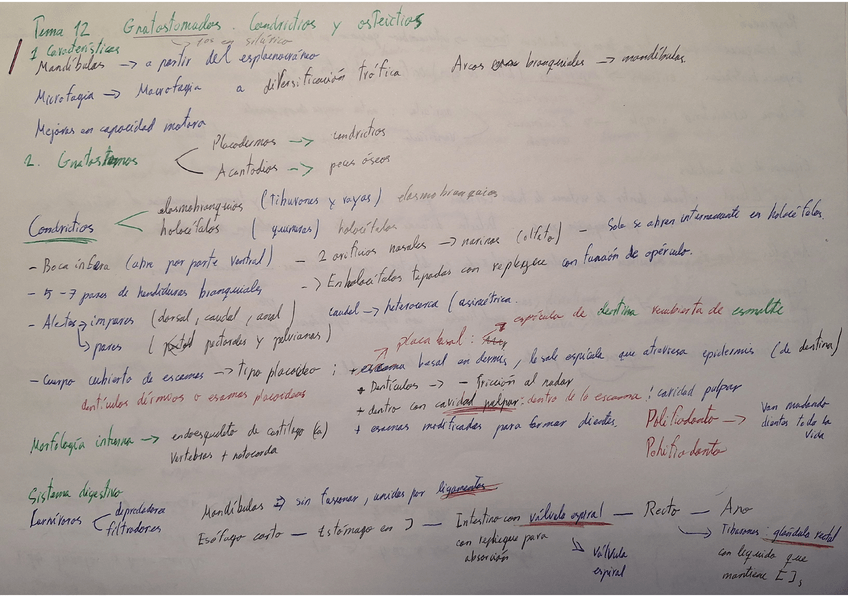 Tema 12 Gnatostomados. Condrictios y osteictios
1 Características
Mandíbulas → a partir del esplacnocráneo
Arcos branquiales → mandíbulas.
Microfagia → Macrofagia a diversificación trófica
Mejoras en capacidad motora
2. Gnatostomos
Placodermos → condrictios
Acantodios → peces óseos
Condrictios
elasmobranquios (tiburones y rayas) elasmobranquios
holocéfalos (quimeras) holocéfalos
- Boca ínfera (abre por parte ventral) - 2 orificios nasales → narinas (olfato) - Solo se abren internamente en holocéfalos.
- 5-7 pares de hendiduras branquiales → En holocéfalos tapadas con repliegue con función de opérculo.
- Aletas → impares (dorsal, caudal, anal) caudal → heterocerca (asimétrica
→ pares (pectorales y pelvianas)
placa basal: espícula de dentina recubierta de esmalte
- Cuerpo cubierto de escamas → tipo placoideo; + escama basal en dermis, le sale espícula que atraviesa epidermis (de dentina)
dentículos dérmicos o escamas placoideas
+ Dentículos → - fricción al nadar
+ dentro con cavidad pulpar: dentro de la escama! cavidad pulpar
+ escamas modificadas para formar dientes.
Polifiodonto → Van mudando dientes toda la vida
Polifiodonto
Morfología interna → endoesqueleto de cartílago (Ca)
Vertebras + notocorda
Sistema digestivo
Carnívoros
depredadores
filtradores
Mandíbulas sin fusionar, unidas por ligamentos
Esófago corto - Estómago en J - Intestino con válvula espiral - Recto - Ano
con repliegue para absorción
válvula espiral
Tiburones: glándula rectal
con líquido que
mantiene [ ],